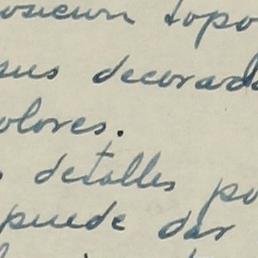 topo
sus decorada
olores.
detalles po
puede dar